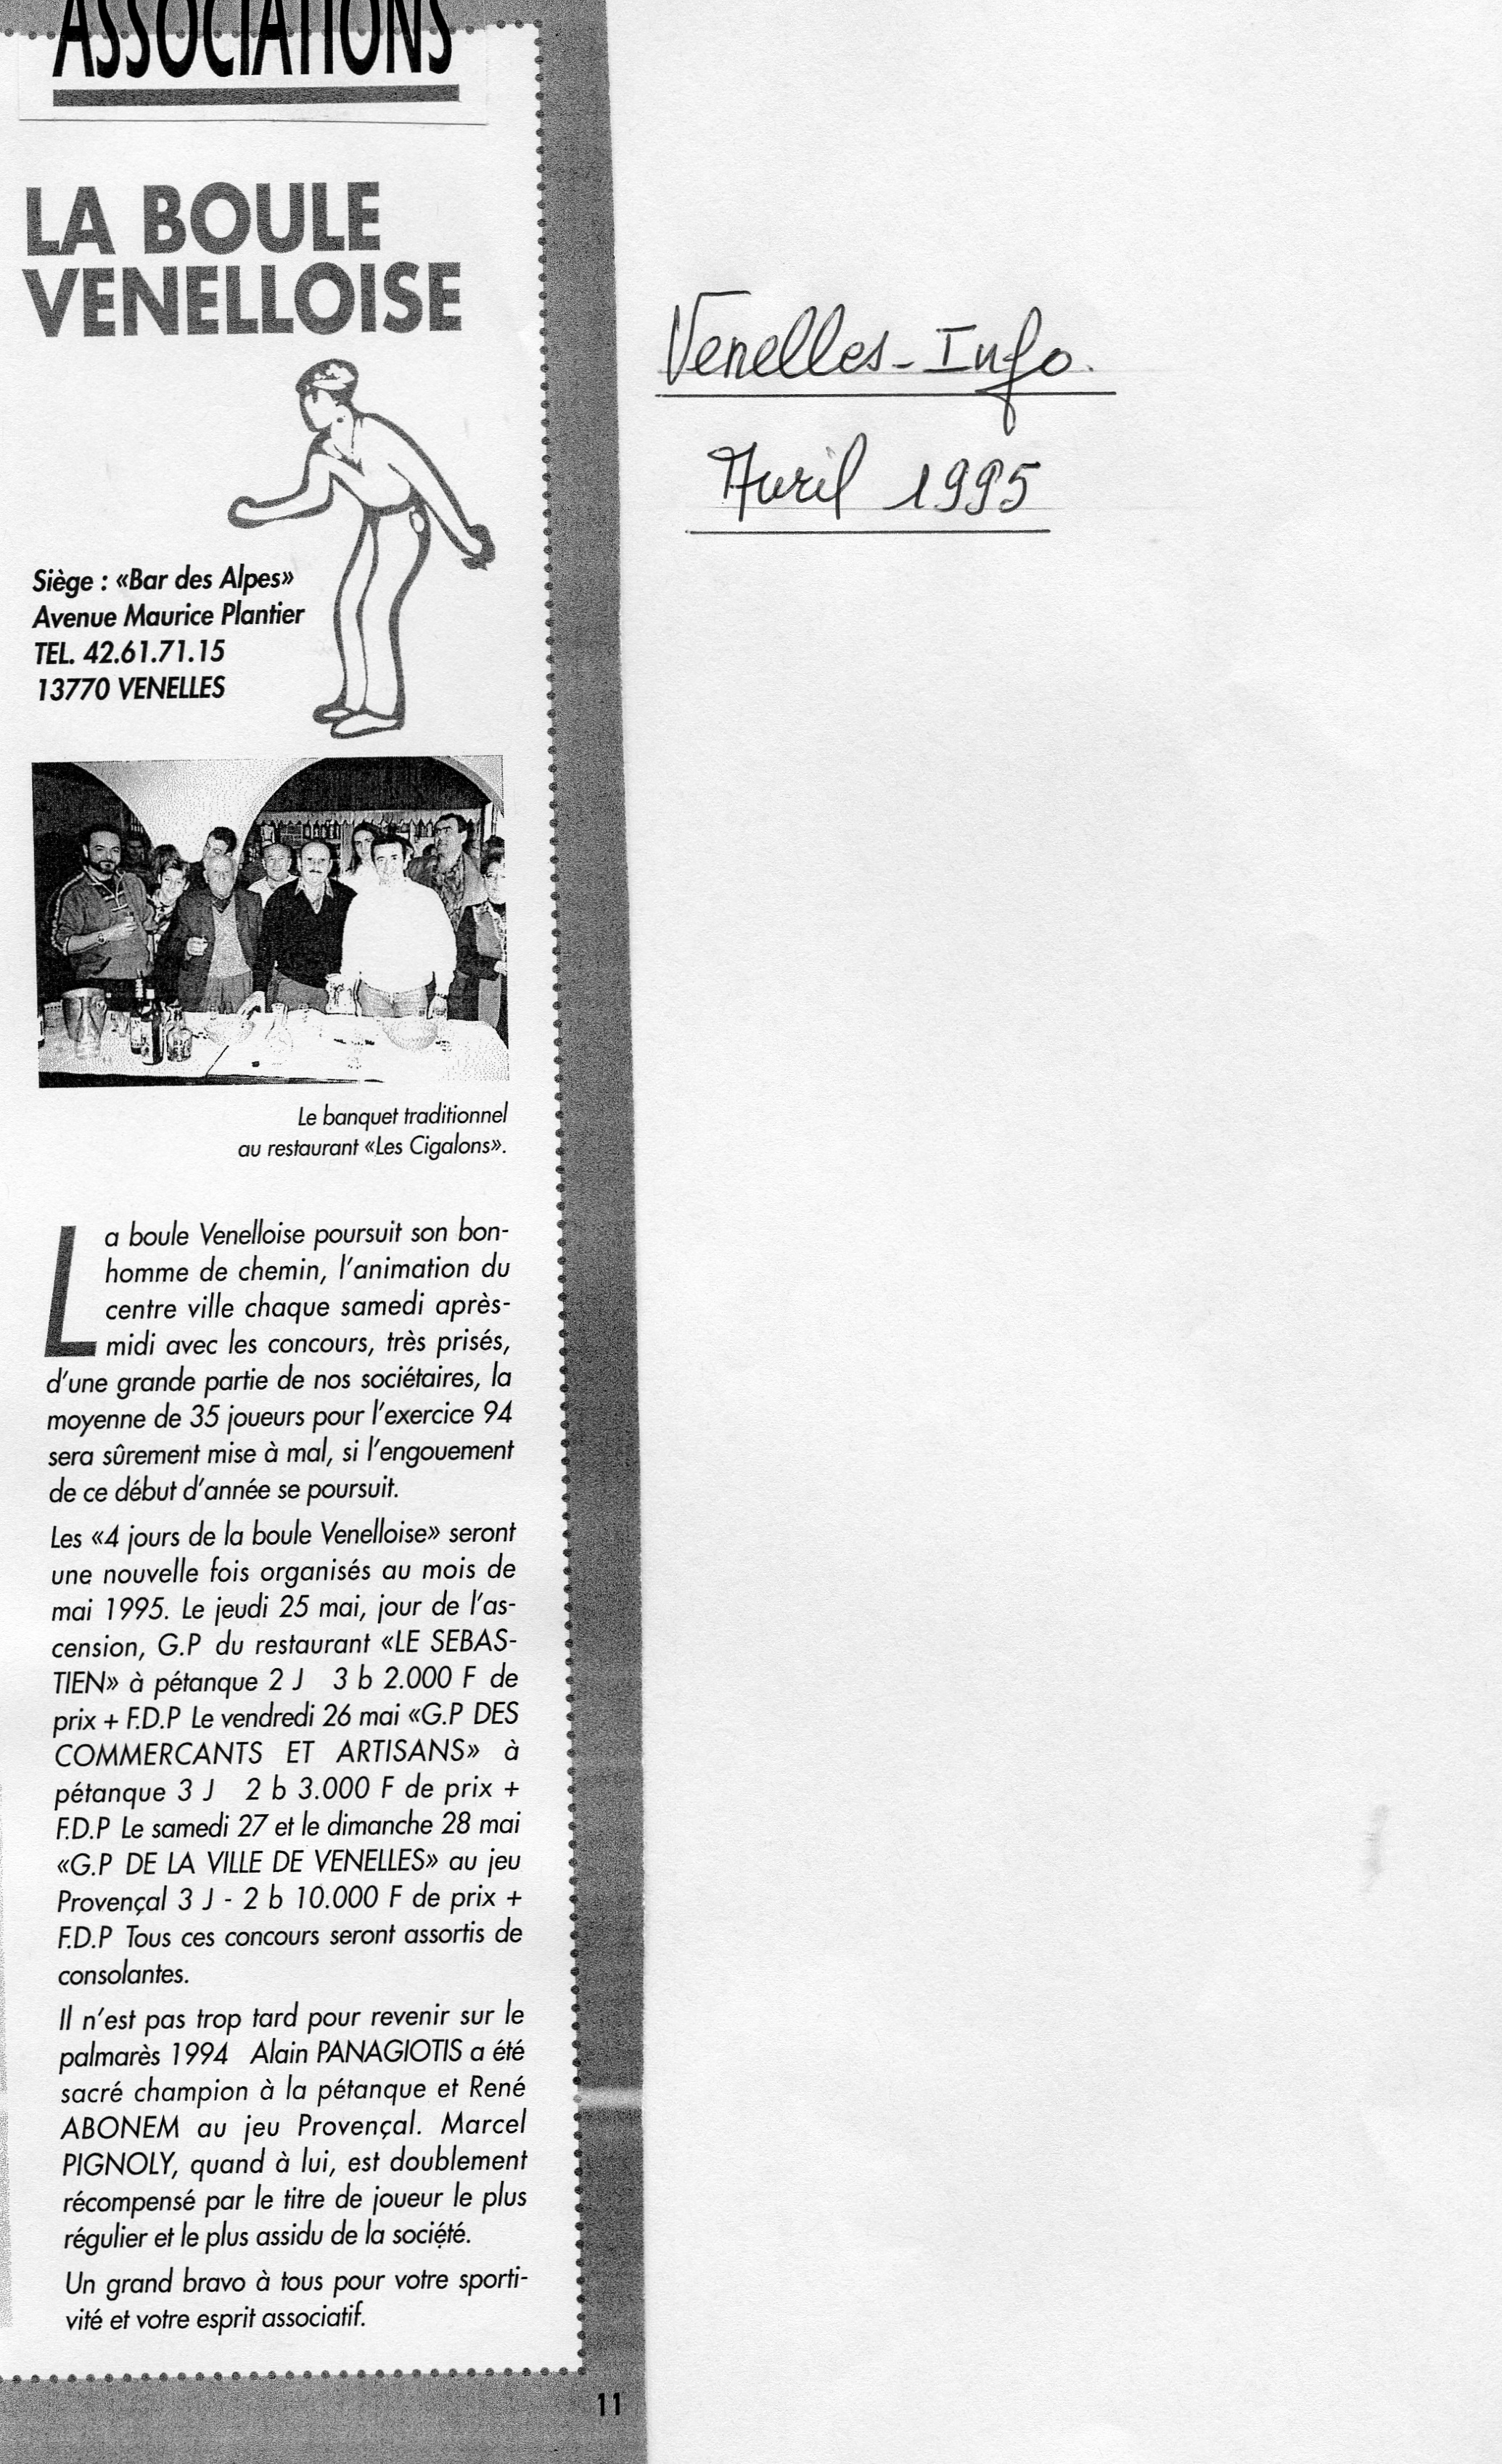 ASSOCIATIONS
LA BOULE
VENELLOISE
Venelles-Info.
Avril 1995
Siège : «Bar des Alpes»
Avenue Maurice Plantier
TEL. 42.61.71.15
13770 VENELLES
Le banquet traditionnel
au restaurant «Les Cigalons».
La boule Venelloise poursuit son bon-
homme de chemin, l'animation du
centre ville chaque samedi après-
midi avec les concours, très prisés,
d'une grande partie de nos sociétaires, la
moyenne de 35 joueurs pour l'exercice 94
sera sûrement mise à mal, si l'engouement
de ce début d'année se poursuit.
Les «4 jours de la boule Venelloise» seront
une nouvelle fois organisés au mois de
mai 1995. Le jeudi 25 mai, jour de l'as-
cension, G.P du restaurant «LE SEBAS-
TIEN» à pétanque 2 J 3 b 2.000 F de
prix + F.D.P Le vendredi 26 mai «G.P DES
COMMERCANTS ET ARTISANS» à
pétanque 3 J 2 b 3.000 F de prix +
F.D.P Le samedi 27 et le dimanche 28 mai
«G.P DE LA VILLE DE VENELLES» au jeu
Provençal 3 J - 2 b 10.000 F de prix +
F.D.P Tous ces concours seront assortis de
consolantes.
Il n'est pas trop tard pour revenir sur le
palmarès 1994 Alain PANAGIOTIS a été
sacré champion à la pétanque et René
ABONEM au jeu Provençal. Marcel
PIGNOLY, quand à lui, est doublement
récompensé par le titre de joueur le plus
régulier et le plus assidu de la société.
Un grand bravo à tous pour votre sporti-
vité et votre esprit associatif.
11